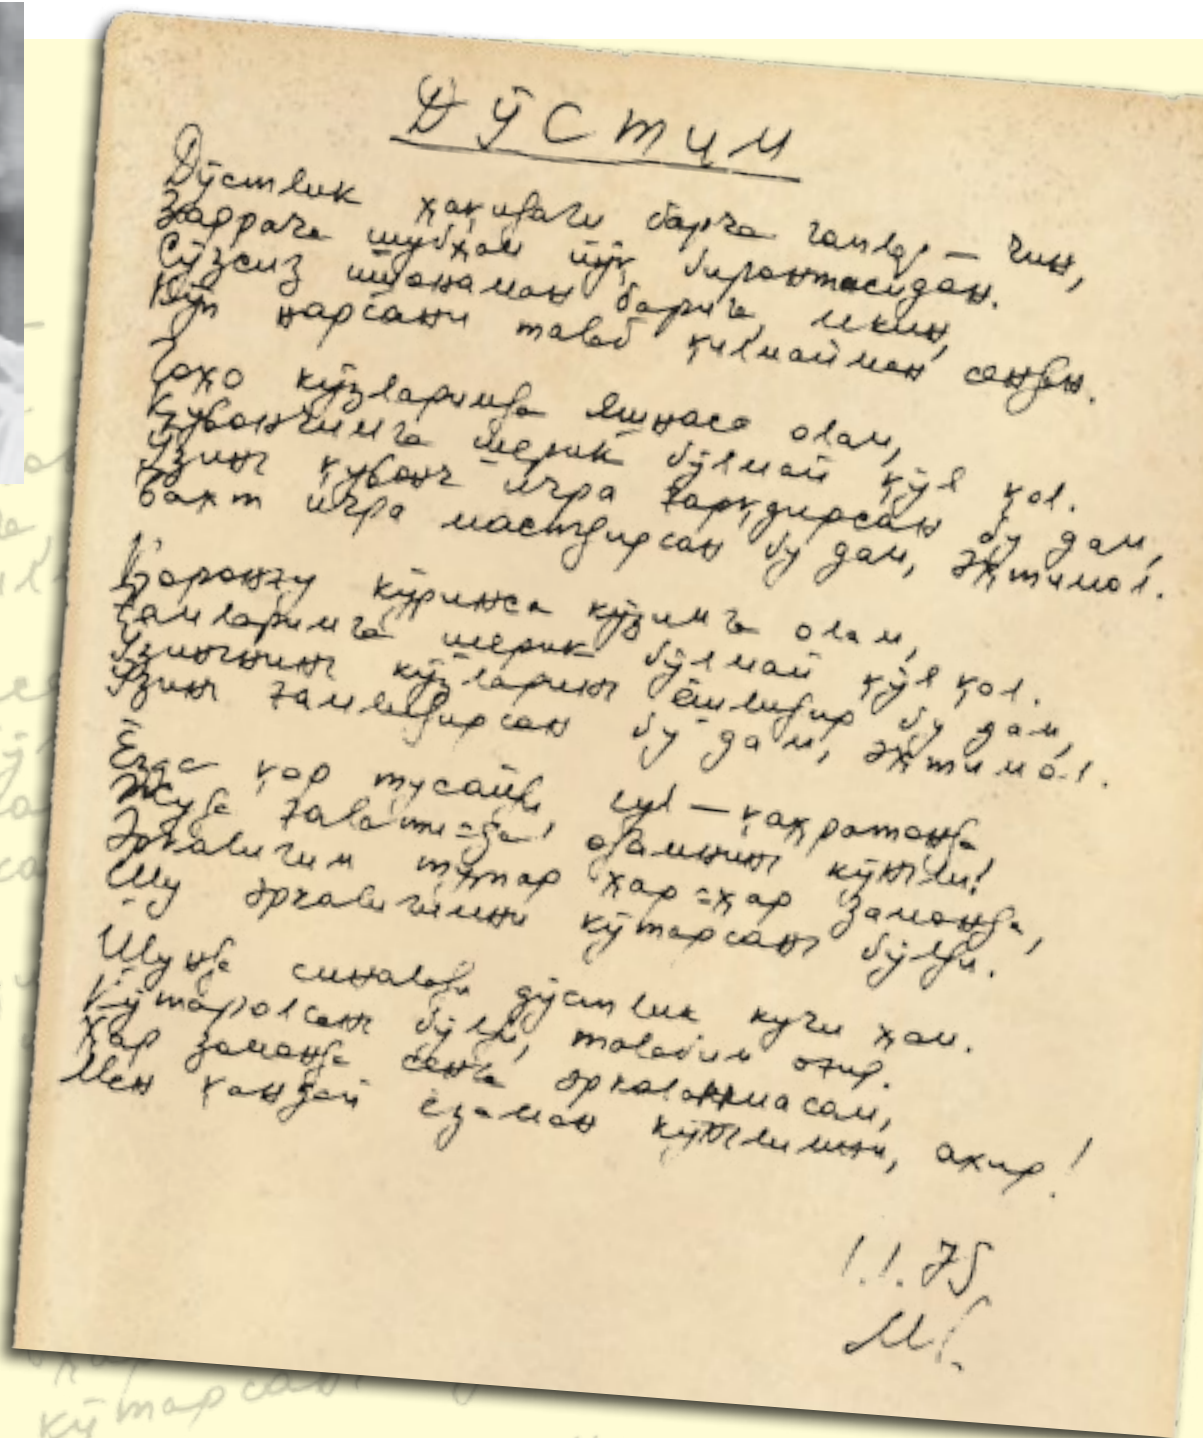 Дўстим
Дўстлик ҳақидаги барча гаплар — чин,
Заррача шубҳам йўқ бирортасидан.
Сўзсиз ишонаман барига, лекин,
Кўп нарсани талаб қилмайман сендан.
Гоҳо кўзларимда яшнаса олам,
Қувончимга шерик бўлмай қўя қол.
Ўзинг қувонч ичра ғарқдирсан бу дам,
Бахт ичра мастдирсан бу дам, эҳтимол.
Қоронғу кўринса кўзимга олам,
Ғамларимга шерик бўлмай қўя қол.
Ўзингнинг кўзларинг ёшлидир бу дам,
Ўзинг ғамлидирсан бу дам, эҳтимол.
Ёзда қор тусайди, гул — қаҳратонда
Жуда ғалати=да! одамнинг кўнгли!
Эркалигим тутар ҳар=ҳар замонда,
Шу эркалигимни кўтарсанг бўлди.
Шунда синалади дўстлик кучи ҳам.
Кўтаролсанг бўлди, талабим оғир.
Ҳар замонда сенга эркаланмасам,
Мен қандай ёзаман кўнглимни, ахир!
1.1.75
М.
кўтарсанг